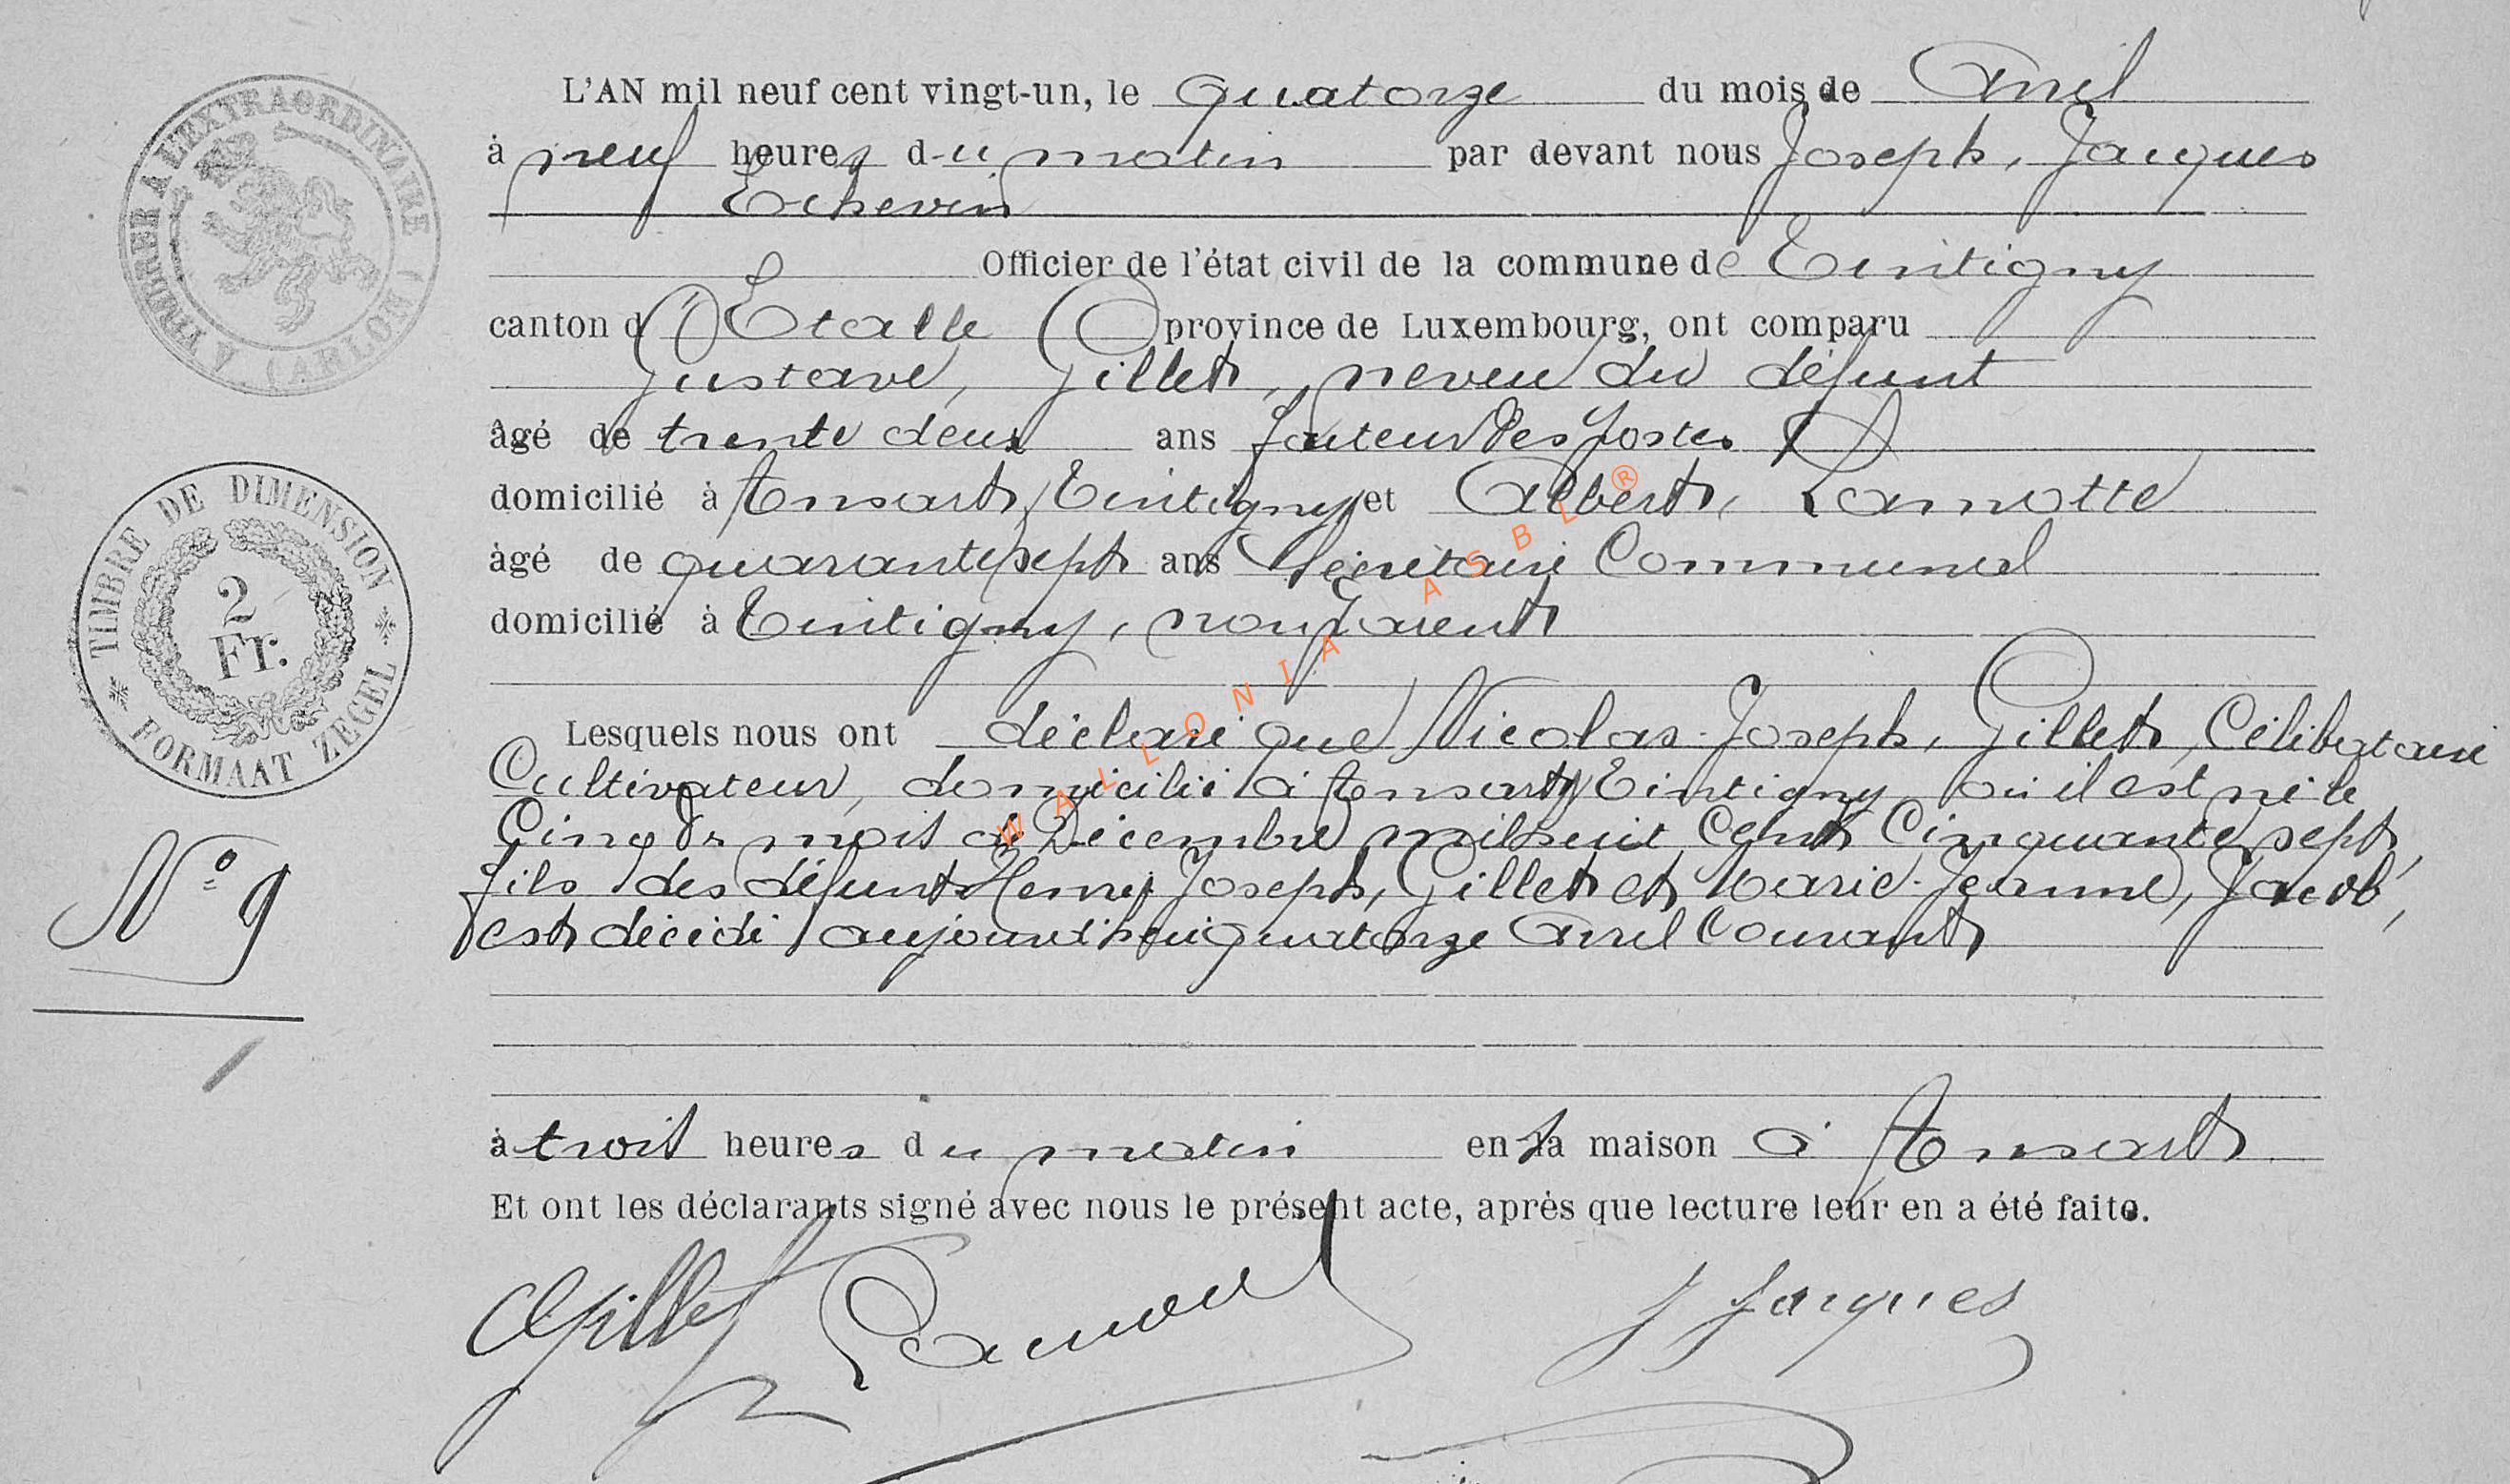 TIMBRER A L'EXTRAORDINAIRE
(ARLON)
L'AN mil neuf cent vingt-un, le quatorze du mois de Avril
à neuf heures du matin par devant nous Joseph, Jacques
Echevin
Officier de l'état civil de la commune de Tintigny
canton d'Etalle province de Luxembourg, ont comparu
Gustave, Gillet, neveu du défunt
âgé de trente deux ans facteur des postes
domicilié à Ansart, Tintigny et Albert, Lamotte
âgé de quarante sept ans Secrétaire Communal
domicilié à Tintigny, non parent
TIMBRE DE DIMENSION
2
Fr.
FORMAAT ZEGEL
Lesquels nous ont déclaré que Nicolas-Joseph, Gillet, Célibataire
Cultivateur, domicilié à Ansart, Tintigny où il est né le
Cinq du mois de Décembre mil huit Cent Cinquante sept,
fils des défunts Henry Joseph, Gillet et Marie-Jeanne, Jacob,
est décédé aujourd'hui quatorze Avril Courant
N° 9
à trois heures du matin en sa maison à Ansart
Et ont les déclarants signé avec nous le présent acte, après que lecture leur en a été faite.
Gillet Lamotte J Jacques
WALLONIA ASBL ®